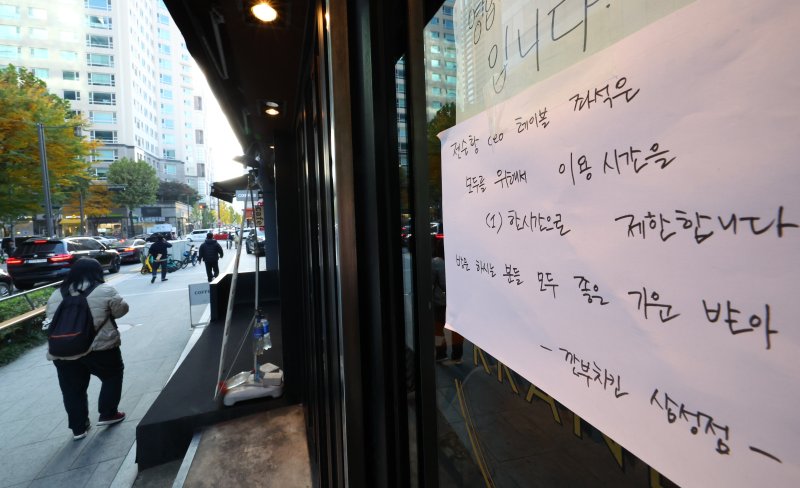 입니다.
젠슨황 ceo 테이블 좌석은
모두를 위해서 이용 시간을
(1) 한시간으로 제한합니다
방문 하시는 분들 모두 좋은 기운 받아
- 깐부치킨 삼성점 -
COFFE